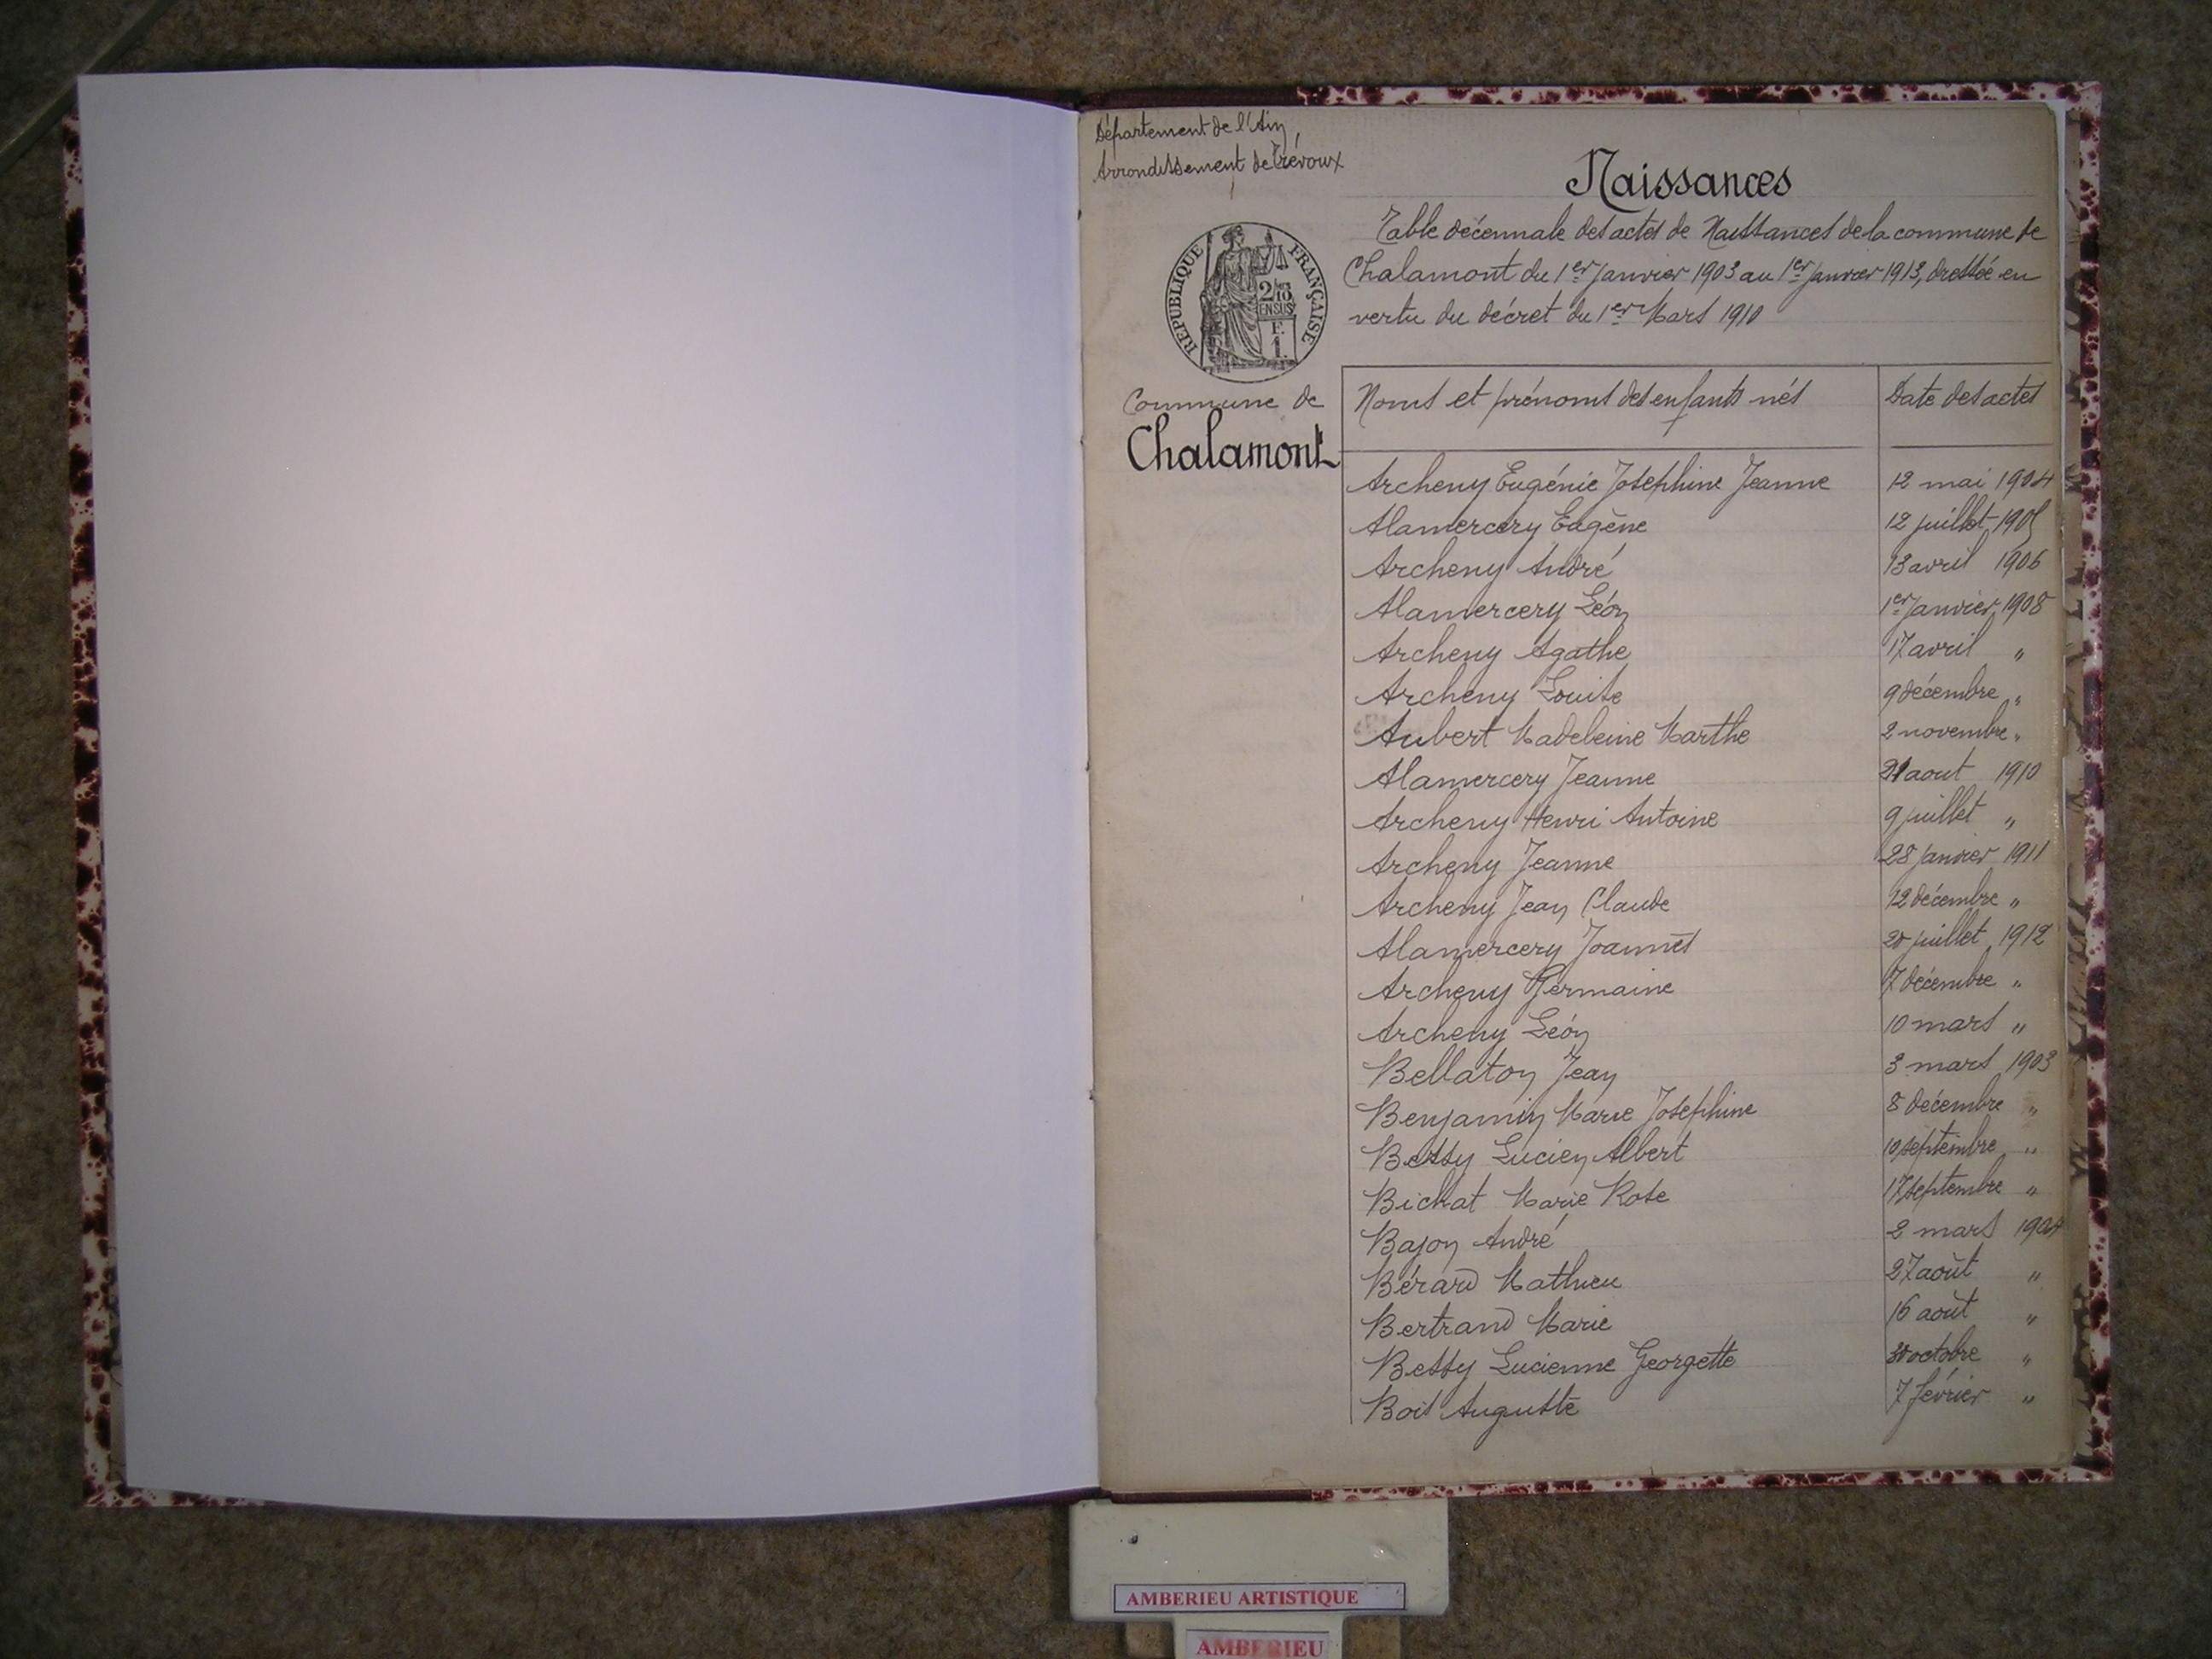 Département de l'Ain,
Arrondissement de Trévoux
Naissances
Table décennale des actes de Naissances de la commune de
Chalamont du 1er Janvier 1903 au 1er Janvier 1913, dressée en
vertu du décret du 1er Mars 1910
REPUBLIQUE FRANÇAISE
2/10
EN SUS
F.
1.
Commune de
Chalamont
Noms et prénoms des enfants nés Date des actes
Archeny Eugénie Joséphine Jeanne 12 mai 1904
Alamercery Eugène 12 juillet 1905
Archeny André 13 avril 1906
Alamercery Léon 1er Janvier 1908
Archeny Agathe 17 avril "
Archeny Louise 9 décembre "
Aubert Madeleine Marthe 2 novembre "
Alamercery Jeanne 21 aout 1910
Archeny Henri Antoine 9 juillet "
Archeny Jeanne 28 janvier 1911
Archeny Jean Claude 12 décembre "
Alamercery Joannès 20 juillet 1912
Archeny Germaine 7 décembre "
Archeny Léon 10 mars "
Bellaton Jean 3 mars 1903
Benjamin Marie Joséphine 8 décembre "
Bessy Lucien Albert 10 septembre "
Bichat Marie Rose 17 septembre "
Bajon André 2 mars 1904
Bérard Mathieu 27 août "
Bertrand Marie 16 août "
Bessy Lucienne Georgette 30 octobre "
Bois Auguste 7 février "
AMBERIEU ARTISTIQUE
AMBERIEU